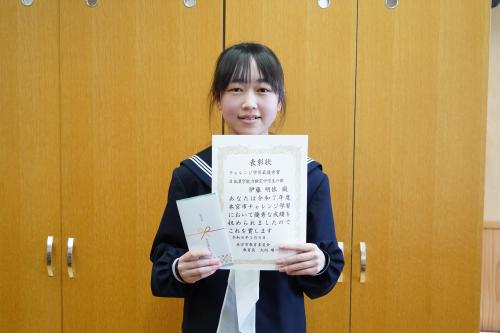 表彰状
チャレンジ学習最優秀賞
日本漢字能力検定中学生の部
伊藤 明依 殿
あなたは令和7年度
本宮市チャレンジ学習
において優秀な成績を
収められましたので
これを賞します
本宮市教育委員会
教育長